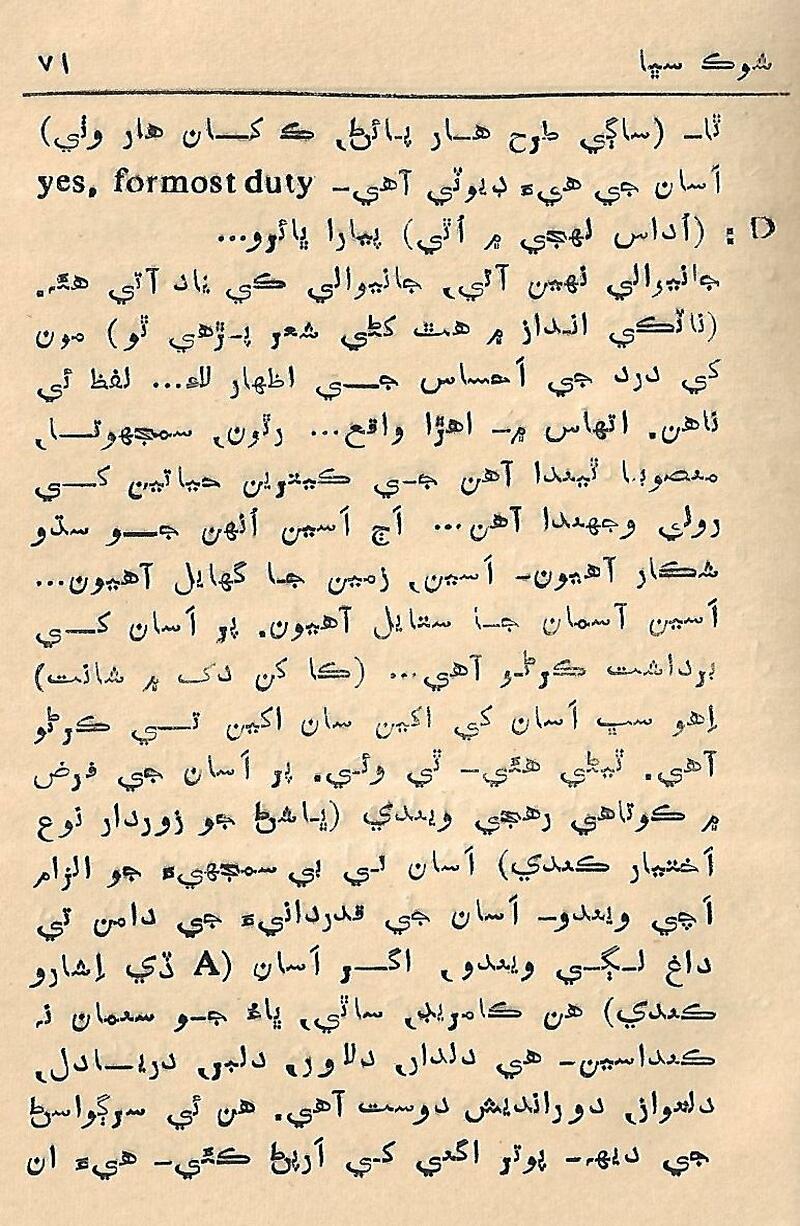 شوڪ سڀا ٧١
ٿا۔ (ساڳي طرح هار پائڻ، ڪ کان هار وٺي)
اَسان جي هيءَ ڊيوٽي آهي۔ yes, formost duty
D : (اُداس لهجي ۾ اُٿي) پيارا ڀائرو...
جانيوالي نهين آتي، جانيوالي کي ياد آتي هئه.
(ناٽڪي انداز ۾ هٿ کڻي شعر پڙهي ٿو) مون
کي درد جي اَحساس جي اظهار لاءِ... لفظ ئي
ناهن. اتهاس ۾۔ اهڙا واقع... رٿون، سمجهوتا،
منصوبا ٿيندا آهن جي ڪيترين حياتين کي
رولي وجهندا آهن... اَڄ اَسين اُنهن جو سڌو
شڪار آهيون۔ اَسين، زمين جا گهايل آهيون...
اَسين آسمان جا ستايل آهيون. پر اَسان کي
برداشت ڪرڻو آهي... (ڪا کن دک ۾ شانت)
اِهو سڀ اَسان کي اکين سان اکين تي ڪرڻو
آهي. ٿيڻي هئي۔ ٿي وئي. پر اَسان جي فرض
۾ ڪوتاهي رهجي ويندي (ڀاشڻ جو زوردار نوع
اَختيار ڪندي) اَسان تي بي سمجهيءَ جو الزام
اَچي ويندو۔ اَسان جي قدردانيءَ جي دامن تي
داغ لڳي ويندو، اگر اَسان (A ڏي اِشارو
ڪندي) هن ڪامريڊ، ساٿي، ڀاءُ جو سنمان نہ
ڪنداسين۔ هي دلدار، دلاور، دلبر، دريادل،
دلنواز، دورانديش دوست آهي. هن ئي سرڳواسڻ
جي ديهہ۔ پوتر اگني کي اَرپڻ ڪئي۔ هيءَ ان